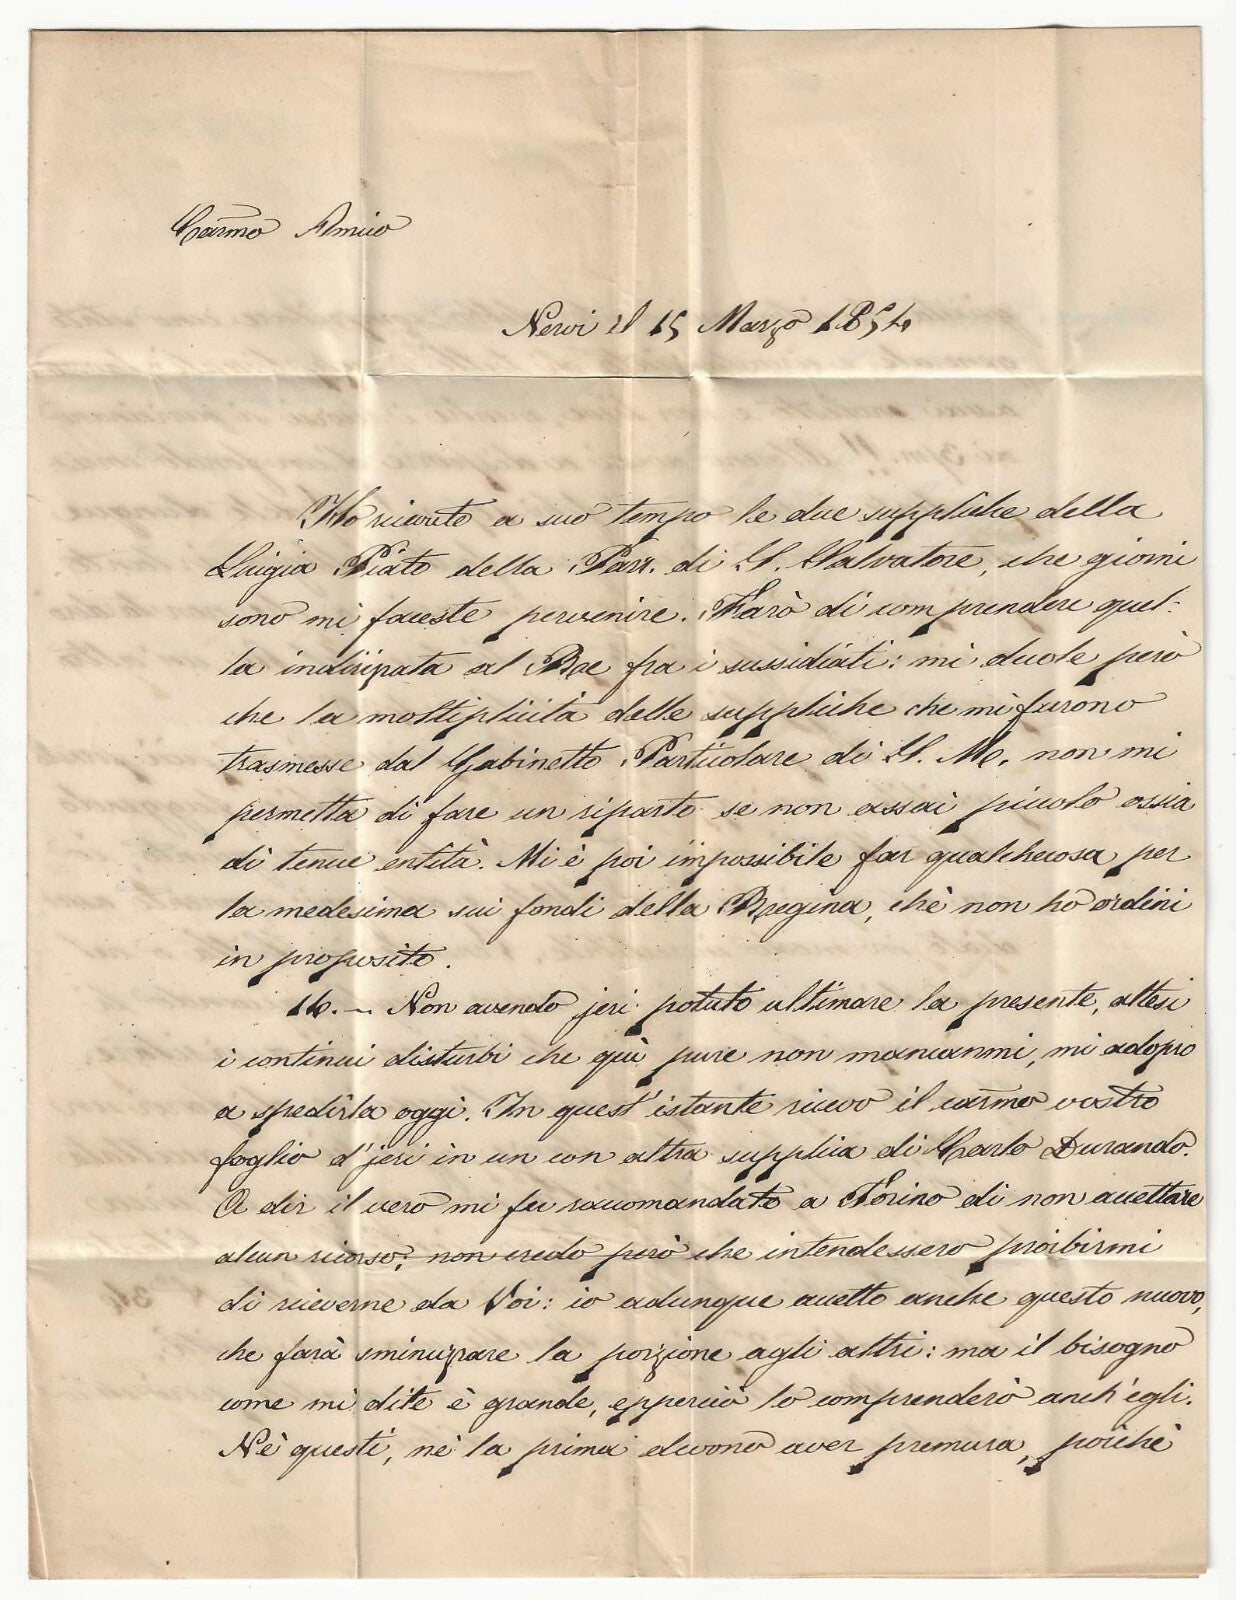 Carmo Amico
Nervi il 15 Marzo 1854
Ho ricevuto a suo tempo le due suppliche della
Luigia Piato della Parr. di S. Salvatore, che giorni
sono mi faceste pervenire. Farò di comprendere quel:
la indirizzata al Re fra i sussidiati: mi duole però
che la moltiplicità delle suppliche che mi furono
trasmesse dal Gabinetto Particolare di S. M. non mi
permetta di fare un riparto se non assai piccolo ossia
di tenue entità. Mi è poi impossibile far qualchecosa per
la medesima sui fondi della Regina, chè non ho ordini
in proposito.
16. — Non avendo jeri potuto ultimare la presente, attesi
i continui disturbi che quì pure non mancanmi, mi adopro
a spedirla oggi. In quest'istante ricevo il carmo vostro
foglio d'jeri in un con altra supplica di Carlo Durando.
A dir il vero mi fu raccomandato a Torino di non accettare
alcun ricorso; non credo però che intendessero proibirmi
di riceverne da Voi: io adunque accetto anche questo nuovo,
che farà sminuzzare la porzione agli altri: ma il bisogno
come mi dite è grande, epperciò lo comprenderò anch'egli.
Nè questi, nè la prima devono aver premura, poichè